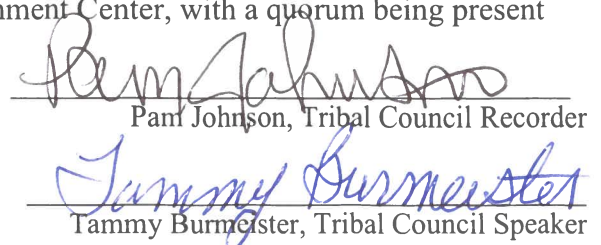 nment Center, with a quorum being present
Pam Johnson
Pam Johnson, Tribal Council Recorder
Tammy Burmeister
Tammy Burmeister, Tribal Council Speaker